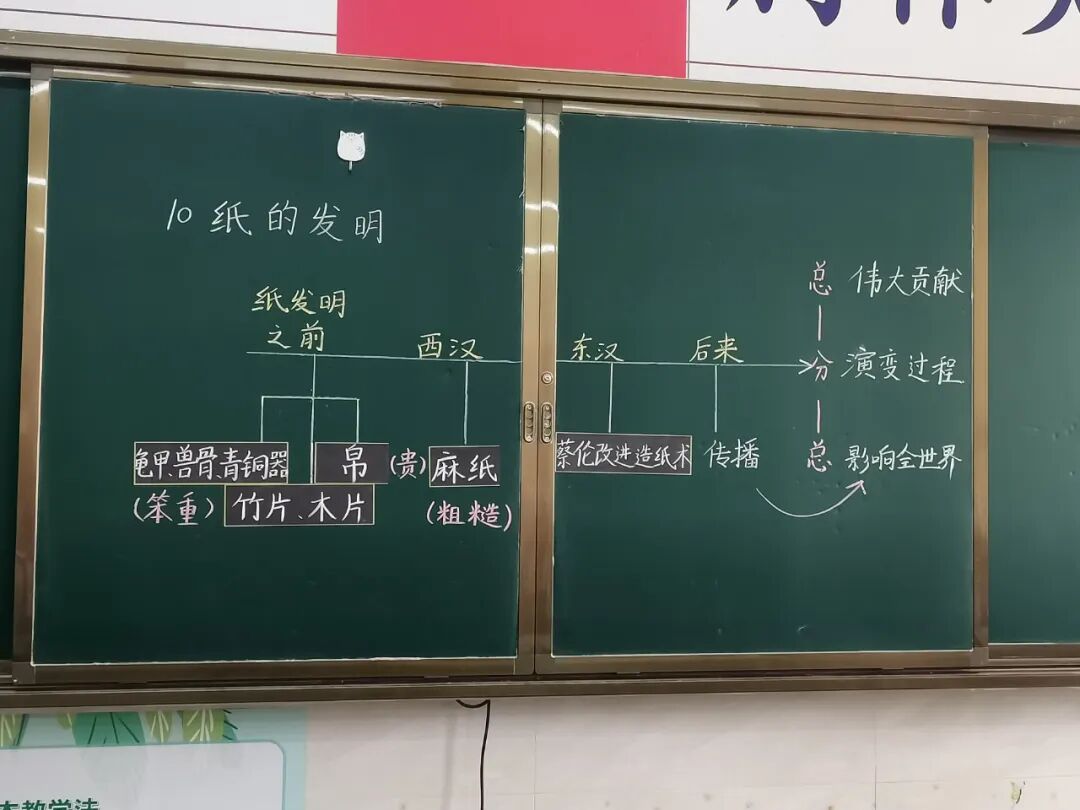 10 纸的发明
纸发明
之前
西汉
东汉
后来
龟甲、兽骨、青铜器
(笨重)
竹片、木片
帛
(贵)
麻纸
(粗糙)
蔡伦改进造纸术
传播
总 伟大贡献
分 演变过程
总 影响全世界
本教学法